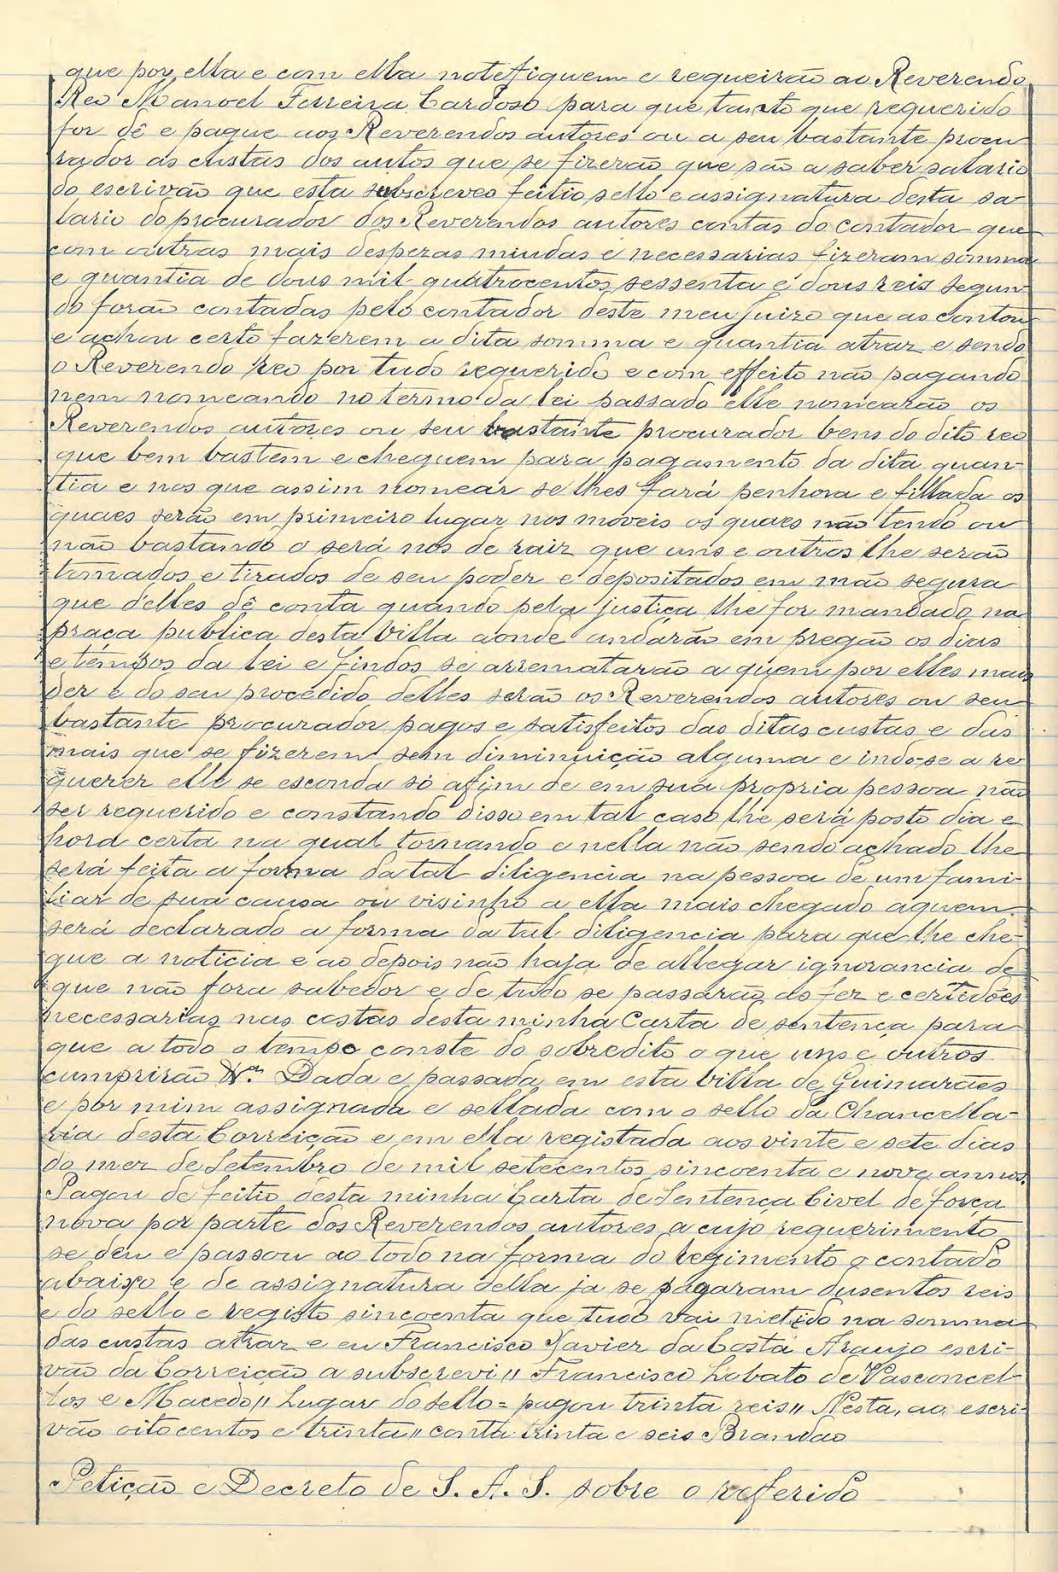 que por ella e com ella notefiquem e requeirão ao Reverendo
Reo Manoel Ferreira Cardoso para que tanto que requerido
for dê e pague aos Reverendos autores ou a seu bastante procu-
rador as custas dos autos que se fizerão que são a saber salario
do escrivão que esta subscreveo feitio, sello e assignatura desta sa-
lario do procurador dos Reverendos autores contas do contador que
com outras mais despezas miudas e necessarias fizeram somma
e quantia de dous mil quatrocentos sessenta e dous reis segun-
do forão contadas pelo contador deste meu juizo que as contou
e achou certo fazerem a dita somma e quantia atraz e sendo
o Reverendo Reo por tudo requerido e com effeito não pagando
nem nomeando no termo da lei passado elle nomearão os
Reverendos autores ou seu bastante procurador bens do dito reo
que bem bastem e cheguem para pagamento da dita quan-
tia e nos que assim nomear se lhes fará penhora e filhada os
quaes serão em primeiro lugar nos moveis os quaes não tendo ou
não bastando o será nos de raiz que uns e outros lhe serão
tomados e tirados de seu poder e depositados em mão segura
que delles dê conta quando pela justiça lhe for mandado na
praça publica desta Villa aonde andarão em pregão os dias
e tempos da lei e findos se arrematarão a quem por elles mais
der e do seu procedido delles serão os Reverendos autores ou seu
bastante procurador pagos e satisfeitos das ditas custas e das
mais que se fizerem sem diminuição alguma e indo-se a re-
querer elle se esconda só afim de em sua propria pessoa não
ser requerido e constando disso em tal caso lhe será posto dia e
hora certa na qual tornando e nella não sendo achado lhe
será feita a forma da tal diligencia na pessoa de um fami-
liar de sua causa ou visinho a ella mais chegado a quem
será declarado a forma da tal diligencia para que lhe che-
gue a noticia e ao depois não haja de allegar ignorancia de
que não fora sabedor e de tudo se passarão as fez e certidões
necessarias nas costas desta minha Carta de sentença para
que a todo o tempo conste do sobredito o que uns e outros
cumprirão Dada e passada em esta Villa de Guimarães
e por mim assignada e sellada com o sello da Chancella-
ria desta Correição e em ella registada aos vinte e sete dias
do mez de Setembro de mil setecentos sincoenta e nove annos.
Pagou de feitio desta minha Carta de Sentença Civel de força
nova por parte dos Reverendos autores a cujo requerimento
se deu e passou ao todo na forma do regimento o contado
abaixo e de assignatura della ja se pagaram dusentos reis
e do sello e registo sincoenta que tudo vai metido na somma
das custas atraz e eu Francisco Xavier da Costa Araujo escri-
vão da Correição a subscrevi // Francisco Lobato de Vasconcel-
los e Macedo // Lugar do sello = pagou trinta reis // Nesta, ao escri-
vão oitocentos e trinta // conta trinta e seis Brandão
Petição e Decreto de S. A. S. sobre o referido